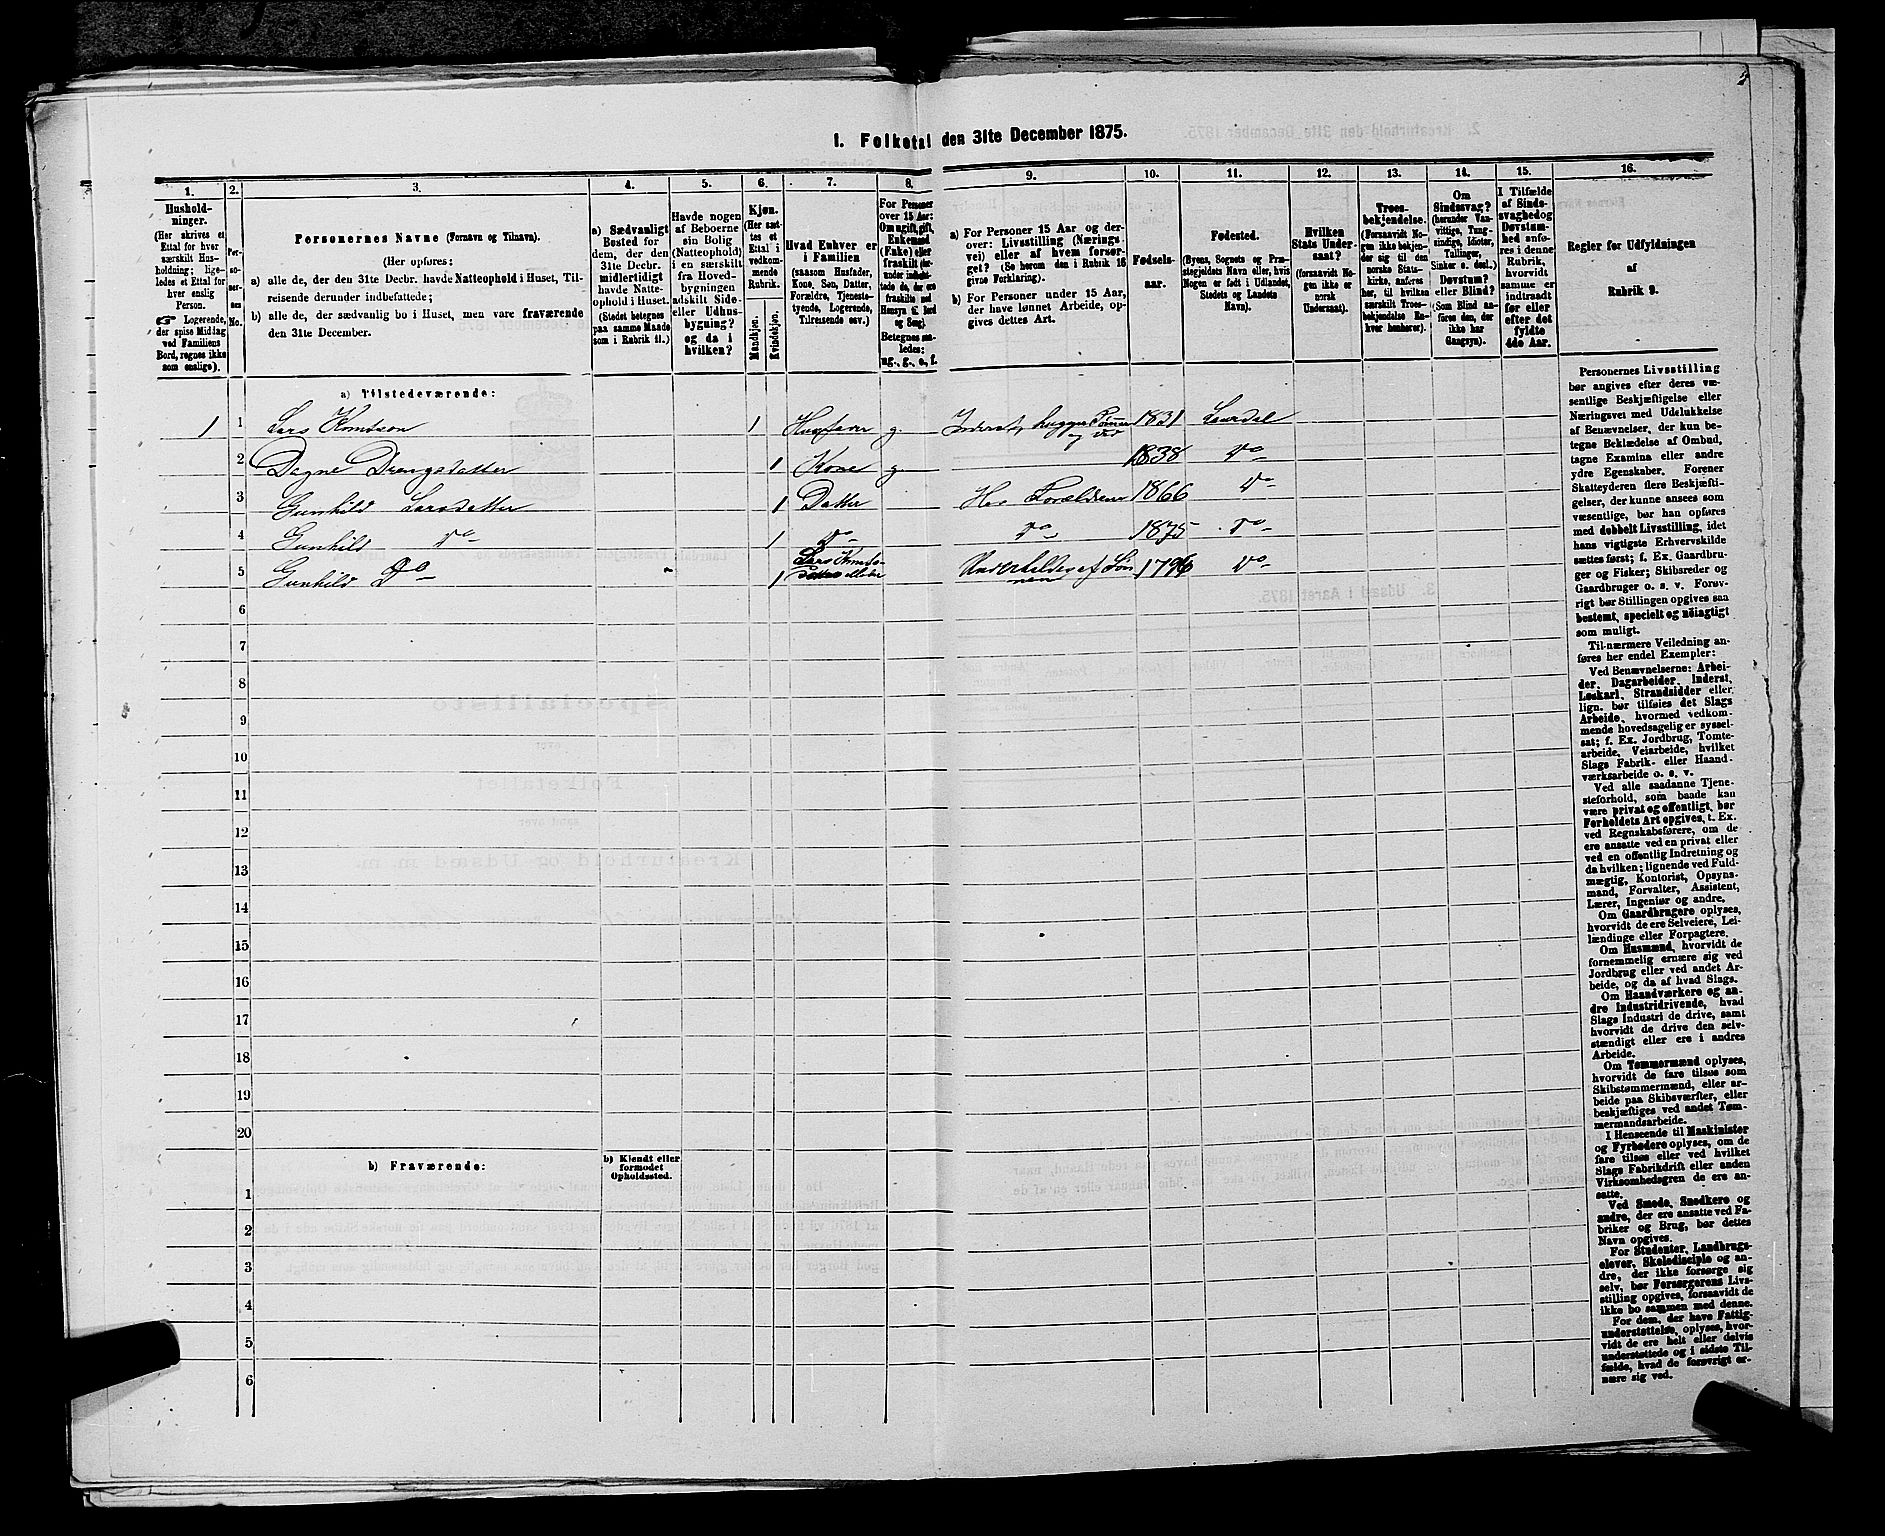 1. Folketal den 31te December 1875.
1. 2. 3. 4. 5. 6. 7. 8. 9. 10. 11. 12. 13. 14. 15. 16.
Hushold-
ninger.
(Her skrives et
Ettal for hver
særskilt Hus-
holdning; lige-
ledes et Ettal for
hver enslig
Person.
☞ Logerende,
der spise Middag
ved Familiens
Bord, regnes ikke
som enslige).
Per-
so-
ner-
nes
No.
Personernes Navne (Fornavn og Tilnavn).
(Her opføres:
a) alle de, der den 31te Decbr. havde Natteophold i Huset, Til-
reisende derunder indbefattede;
b) alle de, der sædvanlig bo i Huset, men vare fraværende
den 31te December.
a) Sædvanligt
Bosted for
dem, der den
31te Decbr.
midlertidigt
havde Natte-
ophold i Huset.
(Stedet betegnes
paa samme Maade
som i Rubrik 11.)
Havde nogen
af Beboerne
sin Bolig
(Natteophold)
i en særskilt
fra Hoved-
bygningen
adskilt Side-
eller Udhus-
bygning?
og da i
hvilken?
Kjøn.
(Her sæt-
tes et
Ettal i
vedkom-
mende
Rubrik.
Mandkjøn.
Kvindekjøn.
Hvad Enhver er
i Familien
(saasom Husfader,
Kone, Søn, Datter,
Forældre, Tjeneste-
tyende, Logerende,
Tilreisende osv.)
For Personer
over 15 Aar:
Om ugift, gift,
Enkemand
(Enke) eller
fraskilt
Betegnes saa-
ledes:
ug., g., e., f.
a) For Personer 15 Aar og der-
over: Livsstilling (Nærings-
vei) eller af hvem forsør-
get? (Se herom den i Rubrik 16
givne Forklaring).
b) For Personer under 15 Aar,
der have lønnet Arbeide, op-
gives dettes Art.
Fødsels-
aar.
Fødested.
(Byens, Sognets og Præ-
stegjeldets Navn eller, hvis
Nogen er født i Udlandet,
Stedets og Landets
Navn).
Hvilken
Stats Under-
saat?
(forsaavidt No-
gen ikke er
norsk
Undersaat).
Troes-
bekjendelse.
(Forsaavidt No-
gen ikke bekjen-
der sig til den
norske Stats-
kirke, anføres
her, til hvilken
særskilt Troes-
bekjendelse En-
hver henhører).
Om
Sindssvag?
(herunder Van-
vittige, Tung-
sindige, Idioter,
Tullinger,
Sinker o. desl.)
Døvstum?
eller Blind?
(Som Blind an-
føres den, der
ikke har
Gangsyn).
I Tilfælde
af Sinds-
svaghed og
Døvstum-
hed anfø-
res i denne
Rubrik,
hvorvidt
samme er
indtraadt
før eller
efter det
fyldte
4de Aar.
Regler for Udfyldningen
af
Rubrik 9.
a) Tilstedeværende:
1 1 Lars Knutson 1 Husfader g. Inderst, hugger Tømmer og Ved 1831 Laurdal
2 Dagne Drengsdatter 1 Kone g. 1838 Do
3 Gunhild Larsdatter 1 Datter Hos Forældrene 1866 Do
4 Gunhild Do 1 Do Do 1875 Do
5 Gunhild Do 1 Lars Underholdes af Sønnen 1796 Do
6
7
8
9
10
11
12
13
14
15
16
17
18
19
20
b) Fraværende:
b) Kjendt eller
formodet
Opholdssted.
1
2
3
4
5
6
Personernes Livsstilling
bør angives efter deres væ-
sentlige Beskjæftigelse eller
Næringsvei med Udelukkelse
af Benævnelser, der kun be-
tegne Beklædelse af Ombud,
tagne Examina eller andre
ydre Egenskaber. Forener
Skatteyderen flere Beskjæfti-
gelser, der kunne ansees som
væsentlige, bør han opføres
med dobbelt Livsstilling, idet
hans vigtigste Erhvervskilde
sættes først; f. Ex. Gaardbru-
ger og Fisker; Skibsreder og
Gaardbruger o. s. v. Forøv-
rigt bør Stillingen opgives saa
bestemt, specielt og nøiagtigt
som muligt.
Til nærmere Veiledning an-
føres her endel Exempler:
Ved Benævnelserne: Arbei-
der, Dagarbeider, Inderst,
Løskarl, Strandsidder eller
lign. bør tilføies det Slags
Arbeide, hvormed vedkom-
mende hovedsagelig er syssel-
sat; f. Ex. Jordbrug, Tomte-
arbeide, Veiarbeide, hvilket
Slags Fabrik- eller Haand-
værksarbeide o. s. v.
Ved alle saadanne Tjene-
steforhold, som baade kan
være privat og offentligt, bør
Forholdets Art opgives, t. Ex.
ved Regnskabsførere, om de
ere ansatte ved en privat eller
ved en offentlig Indretning og
da hvilken; lignende ved Fuld-
mægtig, Kontorist, Opsyns-
mand, Forvalter, Assistent,
Lærer, Ingeniør og andre.
Om Gaardbrugere oplyses,
hvorvidt de ere Selveiere, Lei-
lændinge eller Forpagtere.
Om Husmænd, hvorvidt de
fornemmelig ernære sig ved
Jordbrug eller ved andet Ar-
beide, og da af hvad Slags.
Om Haandværkere og an-
dre Industridrivende, hvad
Slags Industri de drive, samt
hvorvidt de drive den selv-
stændigt eller ere i andres
Arbeide.
Om Tømmermænd oplyses,
hvorvidt de fare tilsøs som
Skibstømmermænd, eller ar-
beide paa Skibsværfter, eller
beskjæftiges ved andet Tøm-
mermandsarbeide.
I Henseende til Maskinister
og Fyrbødere oplyses, om de
fare tilsøs eller ved hvilket
Slags Fabrikdrift eller anden
Virksomhedsgren de ere an-
satte.
Ved Smede, Snedkere og
andre, der ere ansatte ved Fa-
briker og Brug, bør dettes
Navn opgives.
For Studenter, Landbrugs-
elever, Skoledisciple og an-
dre, der ikke forsørge sig
selv, bør Forsørgerens Livs-
stilling opgives, forsaavidt de
ikke bo sammen med denne.
For dem, der have Fattig-
understøttelse, oplyses, hvor-
vidt de ere helt eller delvis
understøttede og i sidste Til-
fælde, hvad de forøvrigt er-
nære sig ved.